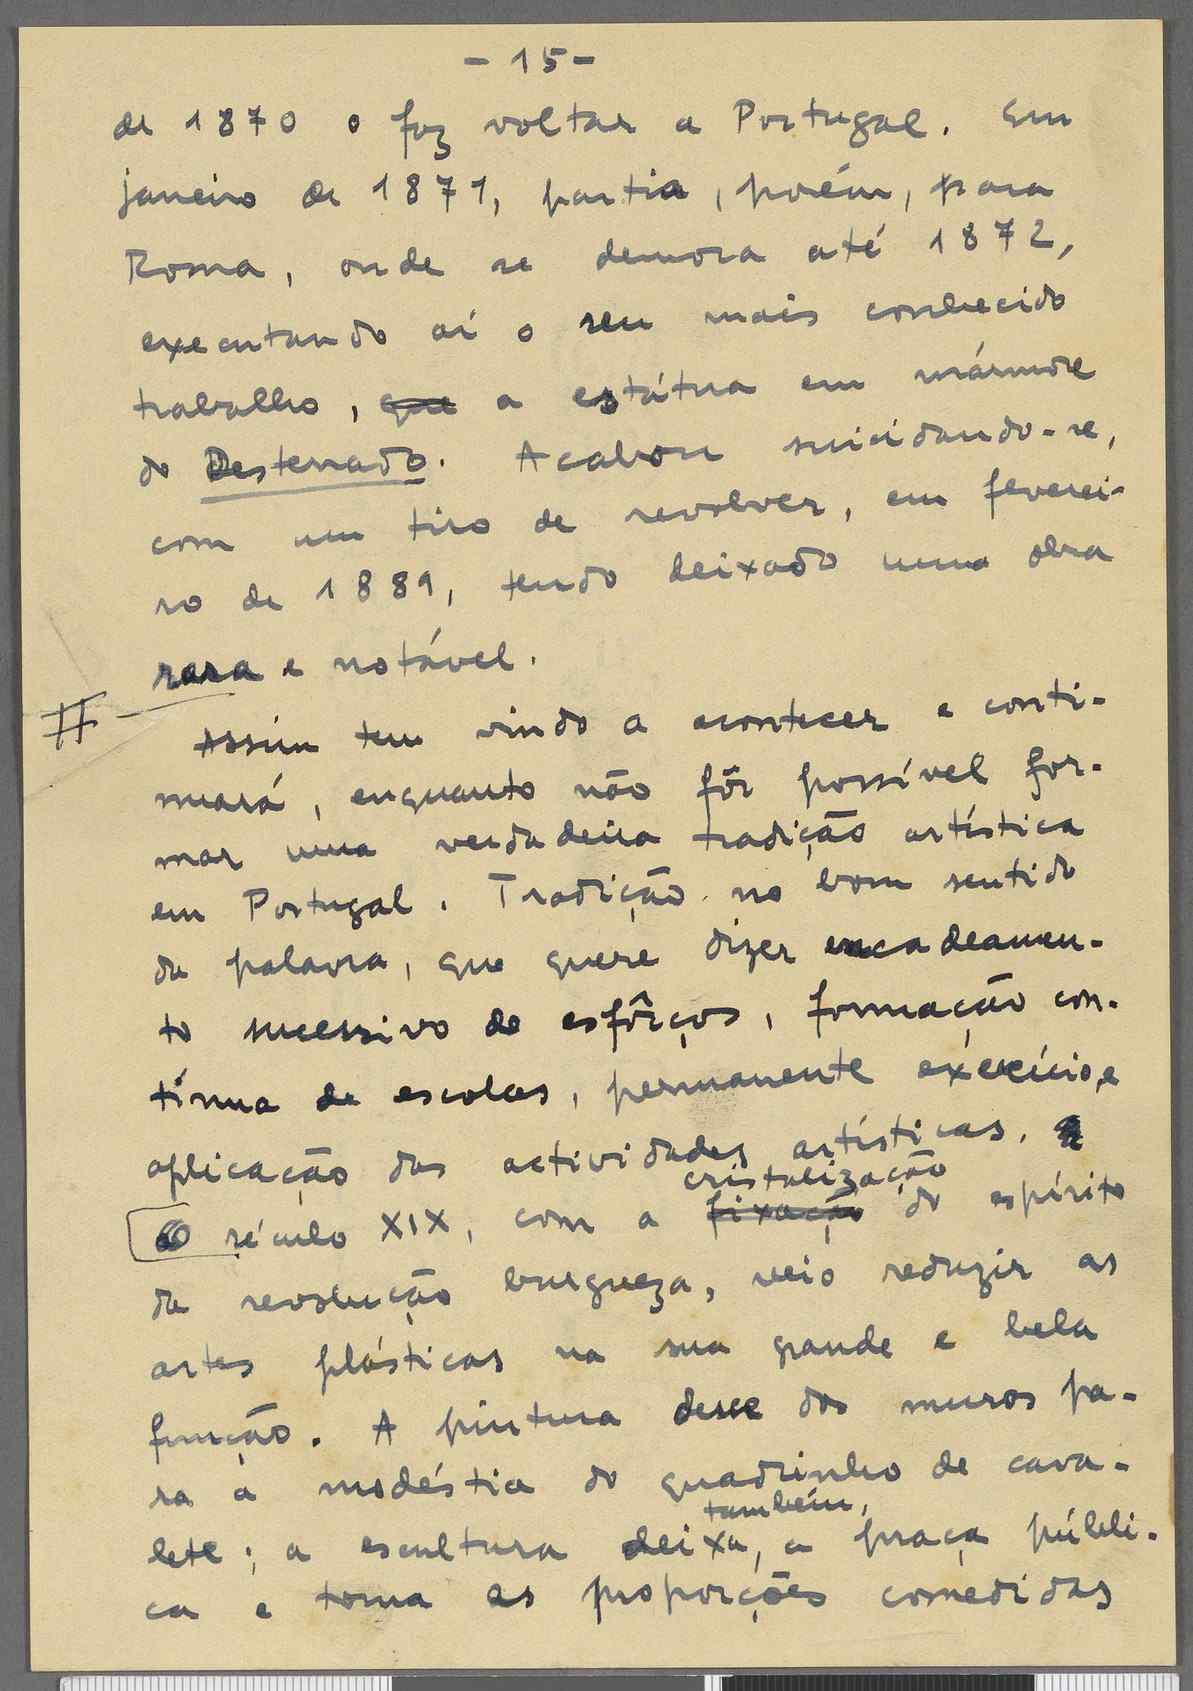 - 15 -
de 1870 o fez voltar a Portugal. Em
janeiro de 1871, partia, porém, para
Roma, onde se demora até 1872,
executando aí o seu mais conhecido
trabalho, que a estátua em mármore
do Desterrado. Acabou suicidando-se,
com um tiro de revolver, em feverei-
ro de 1889, tendo deixado uma obra
rara e notável.
Assim tem vindo a acontecer e conti-
nuará, enquanto não fôr possível for-
mar uma verdadeira tradição artística
em Portugal. Tradição no bom sentido
da palavra, que quere dizer encadeamen-
to sucessivo de esfôrços, formação con-
tínua de escolas, permanente exercício e
aplicação das actividades artísticas.
cristalização
O século XIX, com a fixação do espírito
da revolução burgueza, veio reduzir as
artes plásticas na sua grande e bela
função. A pintura desce dos muros pa-
ra a modéstia do quadrinho de cava-
também,
lete; a escultura deixa, a praça públi-
ca e toma as proporções comedidas